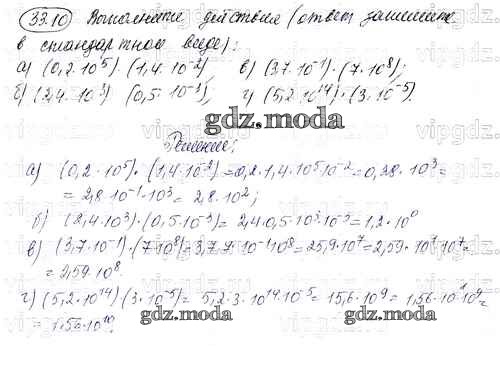 33.10 Выполните действия (ответ запишите
в стандартном виде):
а) (0,2·10⁵)·(1,4·10⁻²), в) (3,7·10⁻¹)·(7·10⁸);
б) (2,4·10³) (0,5·10⁻³), г) (5,2·10¹⁴)·(3·10⁻⁵).
gdz.moda
Решение:
а) (0,2·10⁵)·(1,4·10⁻²)=0,2·1,4·10⁵·10⁻²=0,28·10³=
=2,8·10⁻¹·10³=2,8·10²;
б) (2,4·10³)·(0,5·10⁻³)=2,4·0,5·10³·10⁻³=1,2·10⁰
в) (3,7·10⁻¹)·(7·10⁸)=3,7·7·10⁻¹·10⁸=25,9·10⁷=2,59·10¹·10⁷=
=2,59·10⁸
г) (5,2·10¹⁴)(3·10⁻⁵)=5,2·3·10¹⁴·10⁻⁵=15,6·10⁹=1,56·10¹·10⁹=
=1,56·10¹⁰;
gdz.moda gdz.moda